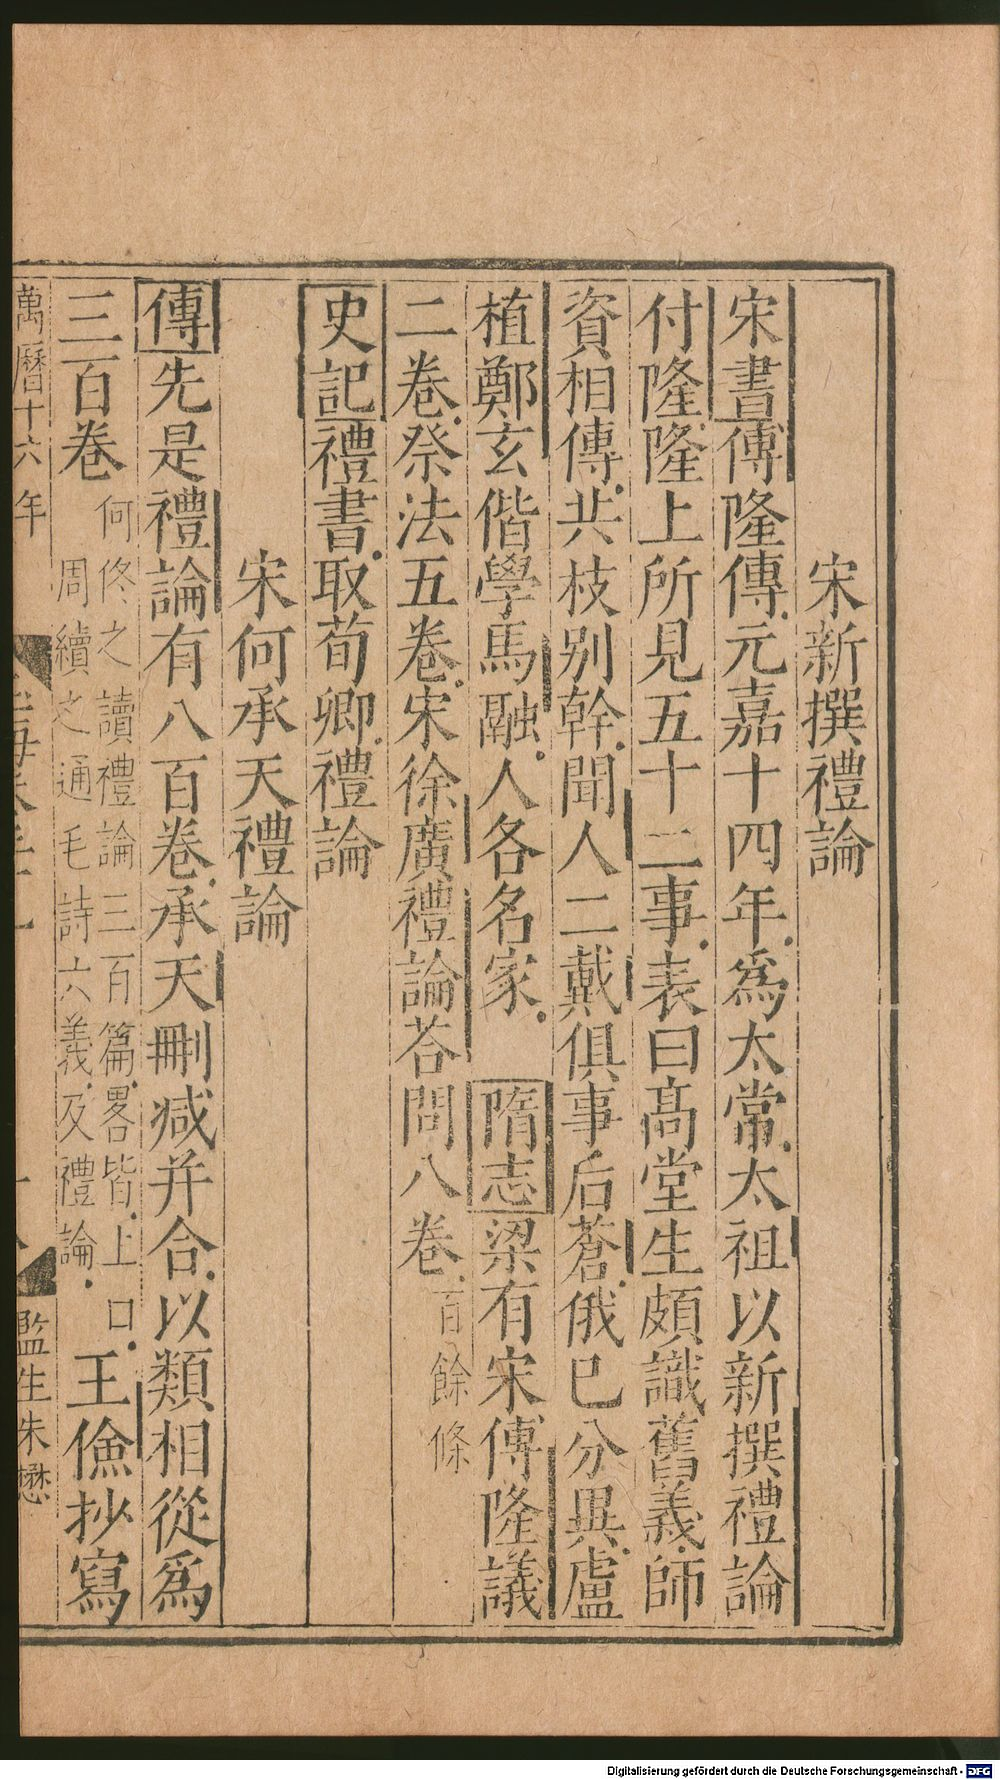 宋新撰禮論
宋書傅隆傳元嘉十四年爲太常太祖以新撰禮論
付隆隆上所見五十二事表曰髙堂生頗識舊義師
資相傳共枝别幹聞人二戴俱事后蒼俄已分異盧
植鄭玄偕學馬融人各名家隋志梁有宋傅隆議
二卷祭法五卷宋徐廣禮論荅問八卷百餘條
史記禮書取荀卿禮論
宋何承天禮論
傳先是禮論有八百卷承天刪减并合以類相從爲
三百卷何佟之讀禮論三百篇畧皆上口周續之通毛詩六義及禮論王儉抄寫
萬曆十六年
監生朱懋
Digitalisierung gefördert durch die Deutsche Forschungsgemeinschaft - DFG